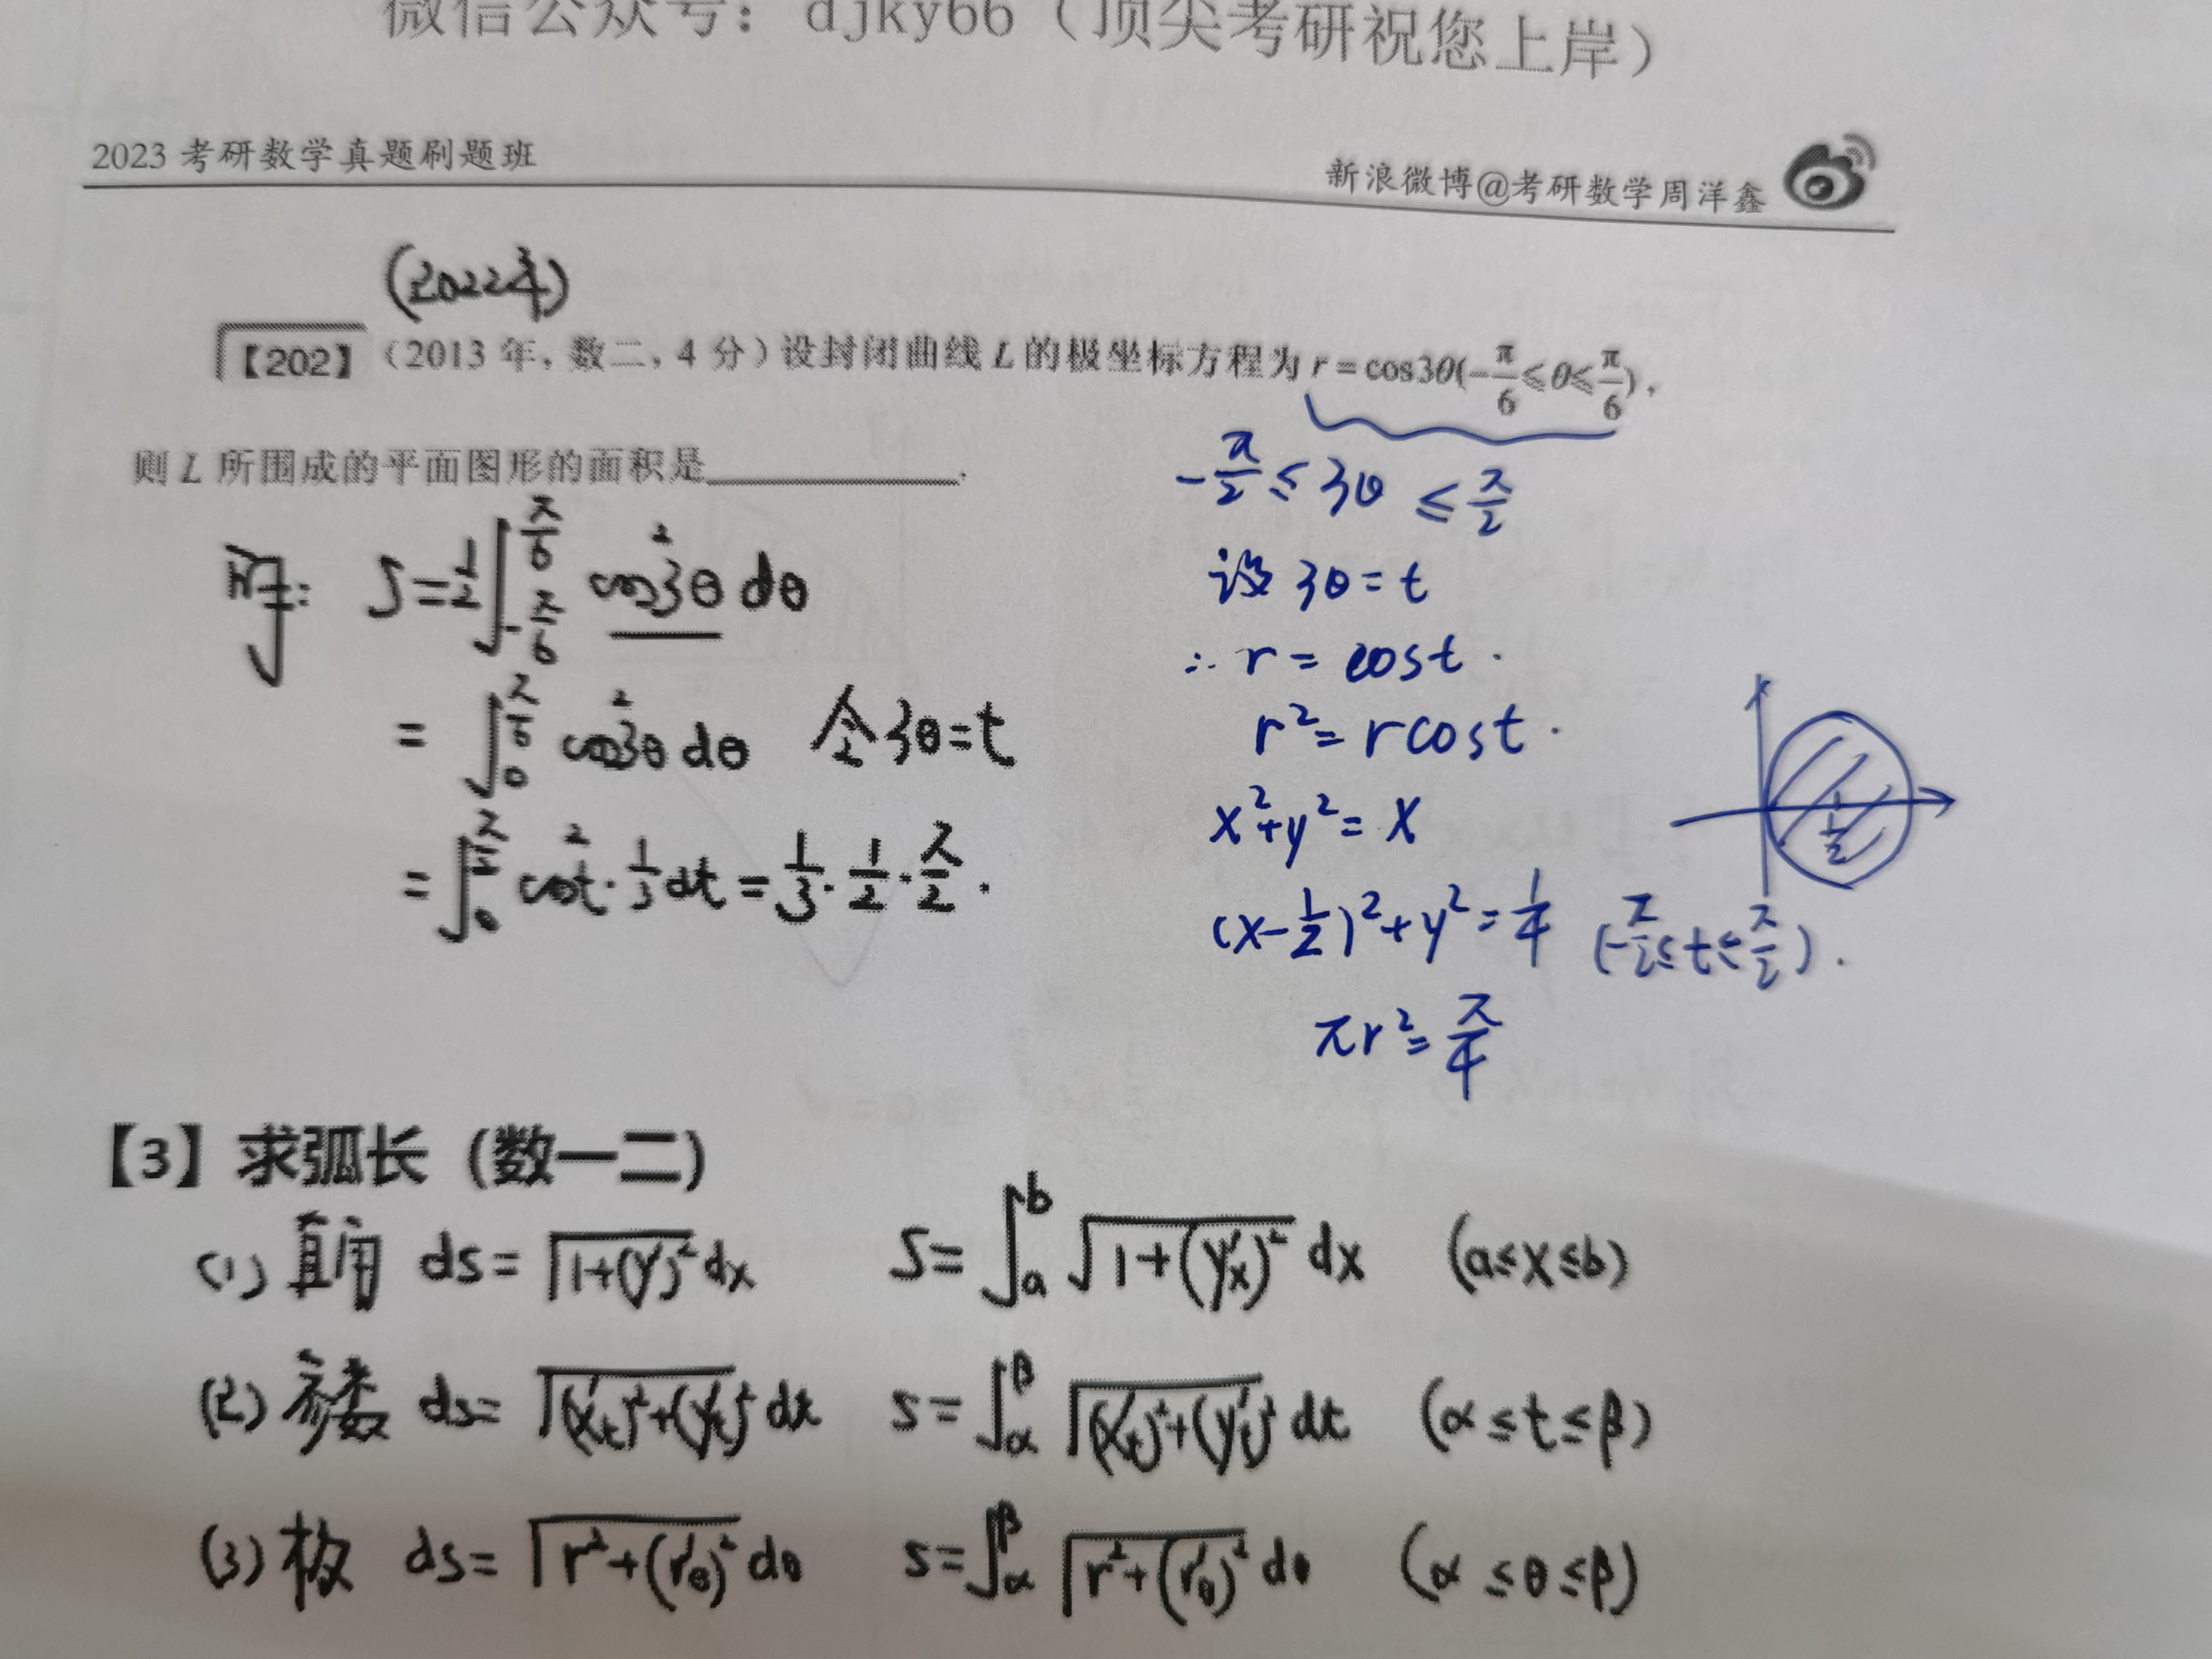 微信公众号：djky66（顶尖考研祝您上岸）
2023 考研数学真题刷题班
新浪微博@考研数学周洋鑫
(2022年)
【202】（2013 年，数二，4 分）设封闭曲线 L 的极坐标方程为 r = cos3θ(-π/6 ≤ θ ≤ π/6)，
则 L 所围成的平面图形的面积是__________.
解: S = 1/2 ∫_{-π/6}^{π/6} cos²3θ dθ
= ∫_0^{π/6} cos²3θ dθ 令3θ=t
= ∫_0^{π/2} cos²t · 1/3 dt = 1/3 · 1/2 · π/2 .
-π/2 ≤ 3θ ≤ π/2
设 3θ = t
∴ r = cost .
r² = rcost .
x²+y² = x
(x-1/2)²+y² = 1/4 (-π/2 ≤ t ≤ π/2) .
πr² = π/4
1/2
【3】求弧长（数一二）
(1) 直角 ds = √(1+(y')²) dx S = ∫_a^b √(1+(y'x)²) dx (a≤x≤b)
(2) 参数 ds = √((x't)²+(y't)²) dt s = ∫_α^β √((x't)²+(y't)²) dt (α≤t≤β)
(3) 极 ds = √(r²+(r'θ)²) dθ s = ∫_α^β √(r²+(r'θ)²) dθ (α≤θ≤β)